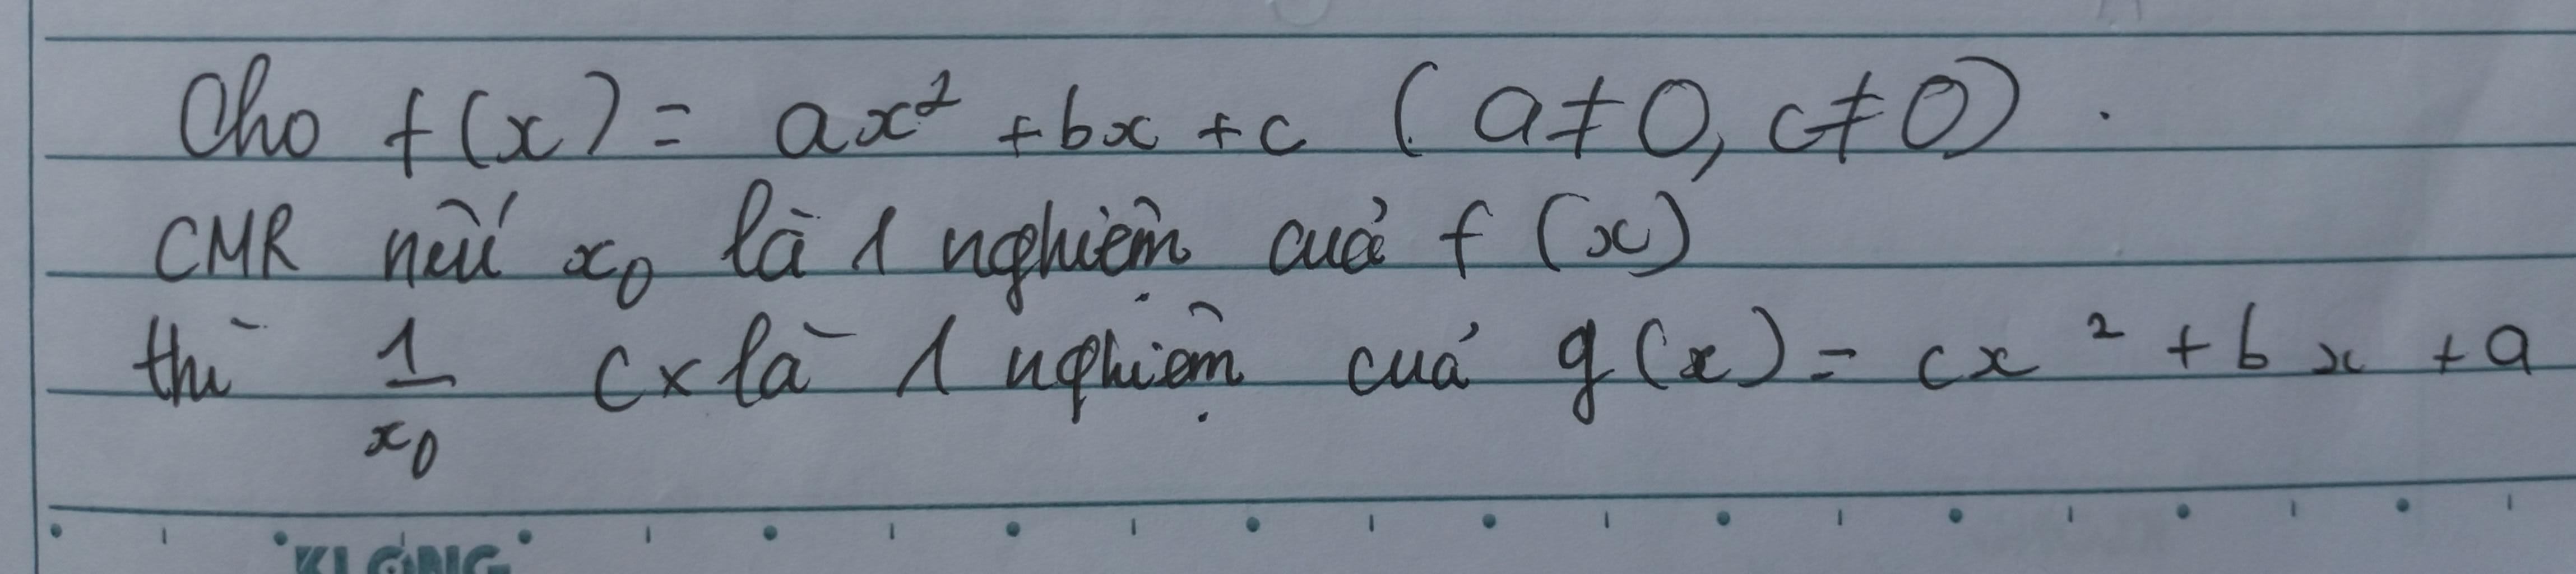 Cho f(x) = ax² + bx + c ( a ≠ 0, c ≠ 0) .
CMR nếú x₀ là 1 nghiệm cuả f (x)
thì 1/x₀ cx là 1 nghiệm cuả g(x) = cx² + bx + a
KLONG